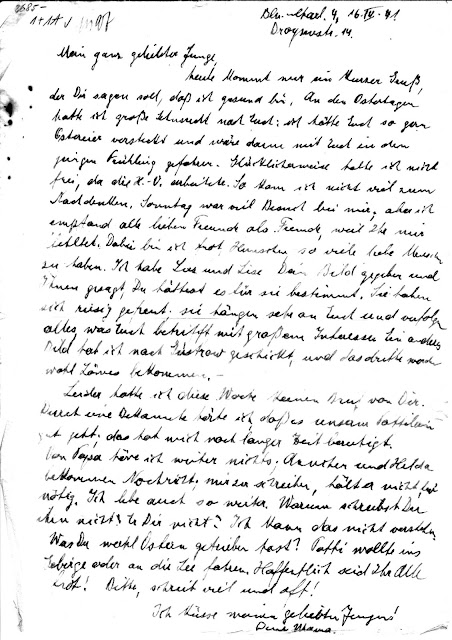 Bln.-Charl. 4, 16.IV.41
Droysenstr. 14.
Mein ganz geliebter Junge,
heute kommt nur ein kurzer Gruß,
der Dir sagen soll, daß ich gesund bin. An den Ostertagen
hatte ich große Sehnsucht nach Euch: ich hätte Euch so gern
Ostereier versteckt und wäre dann mit Euch in den
jungen Frühling gefahren. Glücklicherweise hatte ich nicht
frei, da die arbeitete. So kam ich nicht viel zum
Nachdenken. Sonntag war viel Besuch bei mir, aber ich
empfand alle lieben Freunde als Fremde, weil Ihr mir
fehltet. Dabei bin ich froh so viele liebe Menschen
zu haben. Ich habe und Lise Dein Bild gegeben und
Ihnen gesagt, Du hättest es für sie bestimmt. Sie haben
sich riesig gefreut. Sie hängen sehr an Euch und verfolgen
alles, was Euch betrifft mit großem Interesse. Ein anderes
Bild hab ich nach Güstrow geschickt, und das dritte
wohl bekommen.
Leider hatte ich diese Woche keinen Brief von Dir.
Durch eine Bekannte hörte ich, daß es unserm
gut geht, das hat mich nach langer Zeit beruhigt.
Von Papa höre ich weiter nichts. und Hilda
bekommen Nachricht, mir zu schreiben, hält er nicht für
nötig. Ich lebe auch so weiter. Warum schreibst Du
ihm nicht? Er Dir nicht? Ich kann das nicht verstehen.
Was Du wohl Ostern getrieben hast? wollte ins
Gebirge oder an die See fahren. Hoffentlich seid Ihr Alle
froh! Bitte, schreib viel und oft!
Ich küsse meinen geliebten Jungen!
Deine Mama.